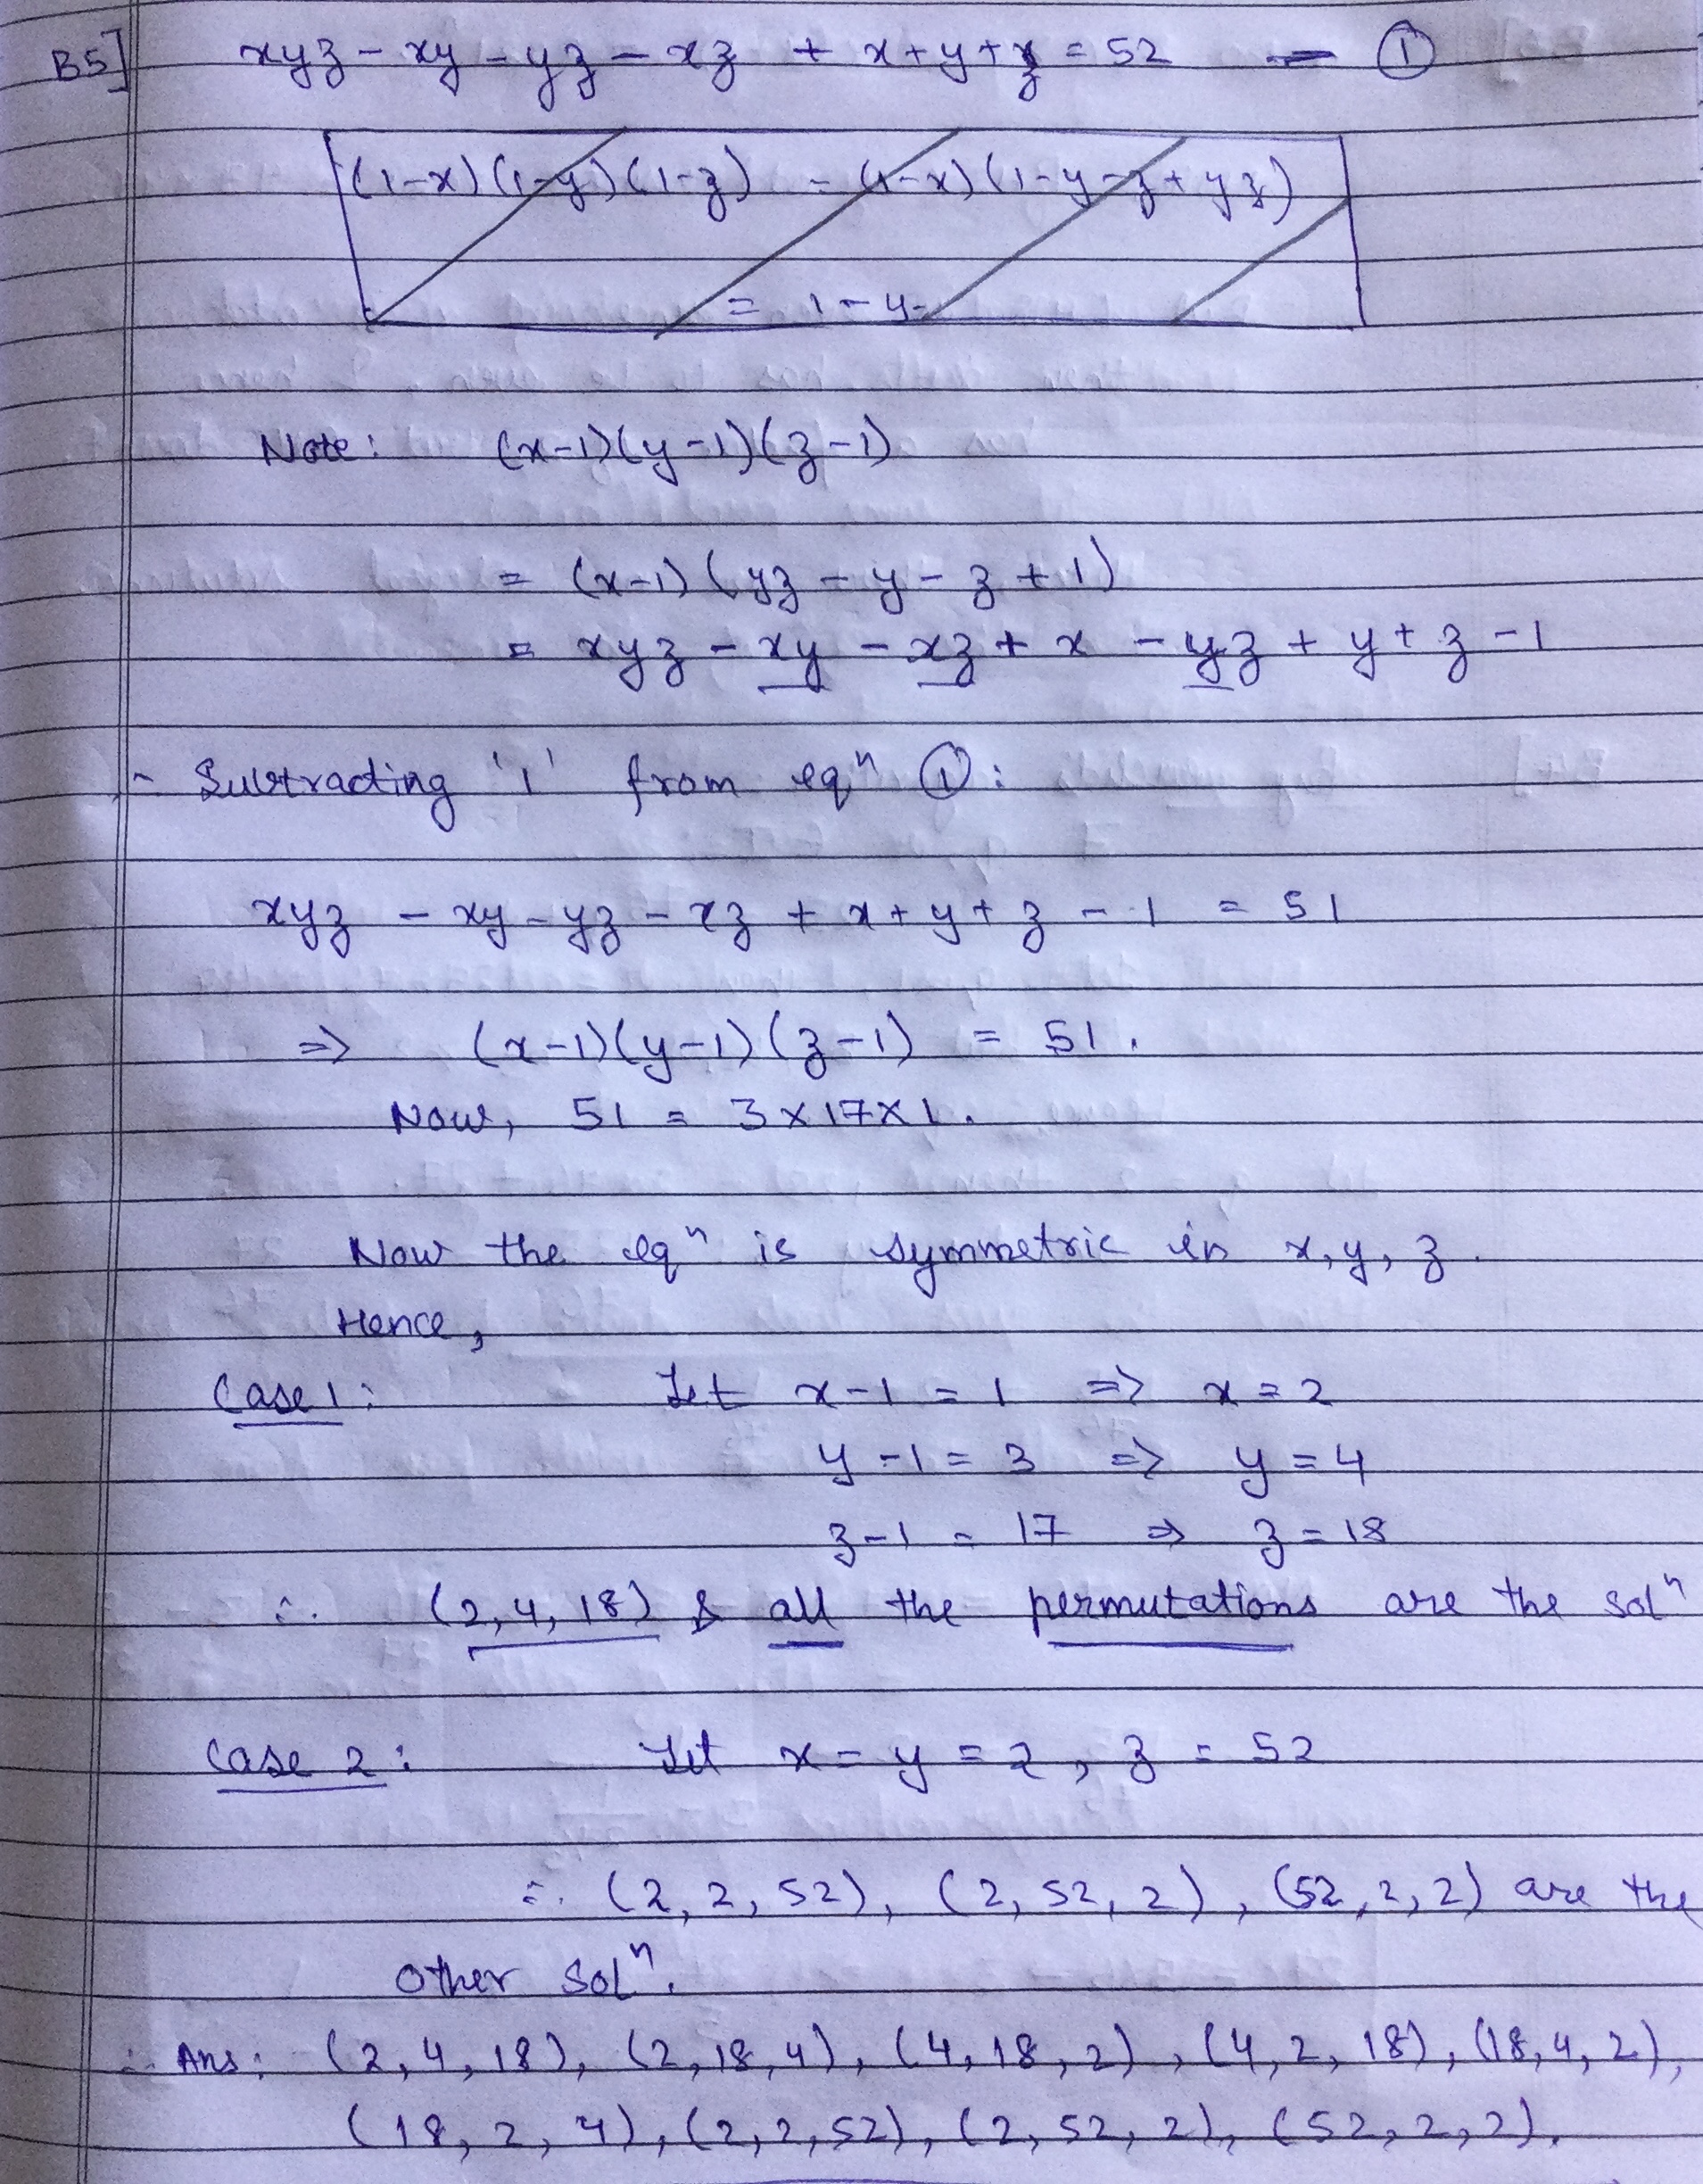 B5] xyz - xy - yz - xz + x + y + z = 52 — ①
(1-x)(1-y)(1-z) = (1-x)(1-y-z+yz)
= 1 - y -
Note: (x-1)(y-1)(z-1)
= (x-1)(yz - y - z + 1)
= xyz - xy - xz + x - yz + y + z - 1
∴ Subtracting '1' from eqⁿ ①:
xyz - xy - yz - xz + x + y + z - 1 = 51
⇒ (x-1)(y-1)(z-1) = 51.
Now, 51 = 3×17×1.
Now the eqⁿ is symmetric in x, y, z.
Hence,
Case 1: Let x-1 = 1 ⇒ x = 2
y-1 = 3 ⇒ y = 4
z-1 = 17 ⇒ z = 18
∴ (2, 4, 18) & all the permutations are the solⁿ
Case 2: Let x = y = 2, z = 52
∴ (2, 2, 52), (2, 52, 2), (52, 2, 2) are the
other solⁿ.
∴ Ans: (2, 4, 18), (2, 18, 4), (4, 18, 2), (4, 2, 18), (18, 4, 2),
(18, 2, 4), (2, 2, 52), (2, 52, 2), (52, 2, 2).